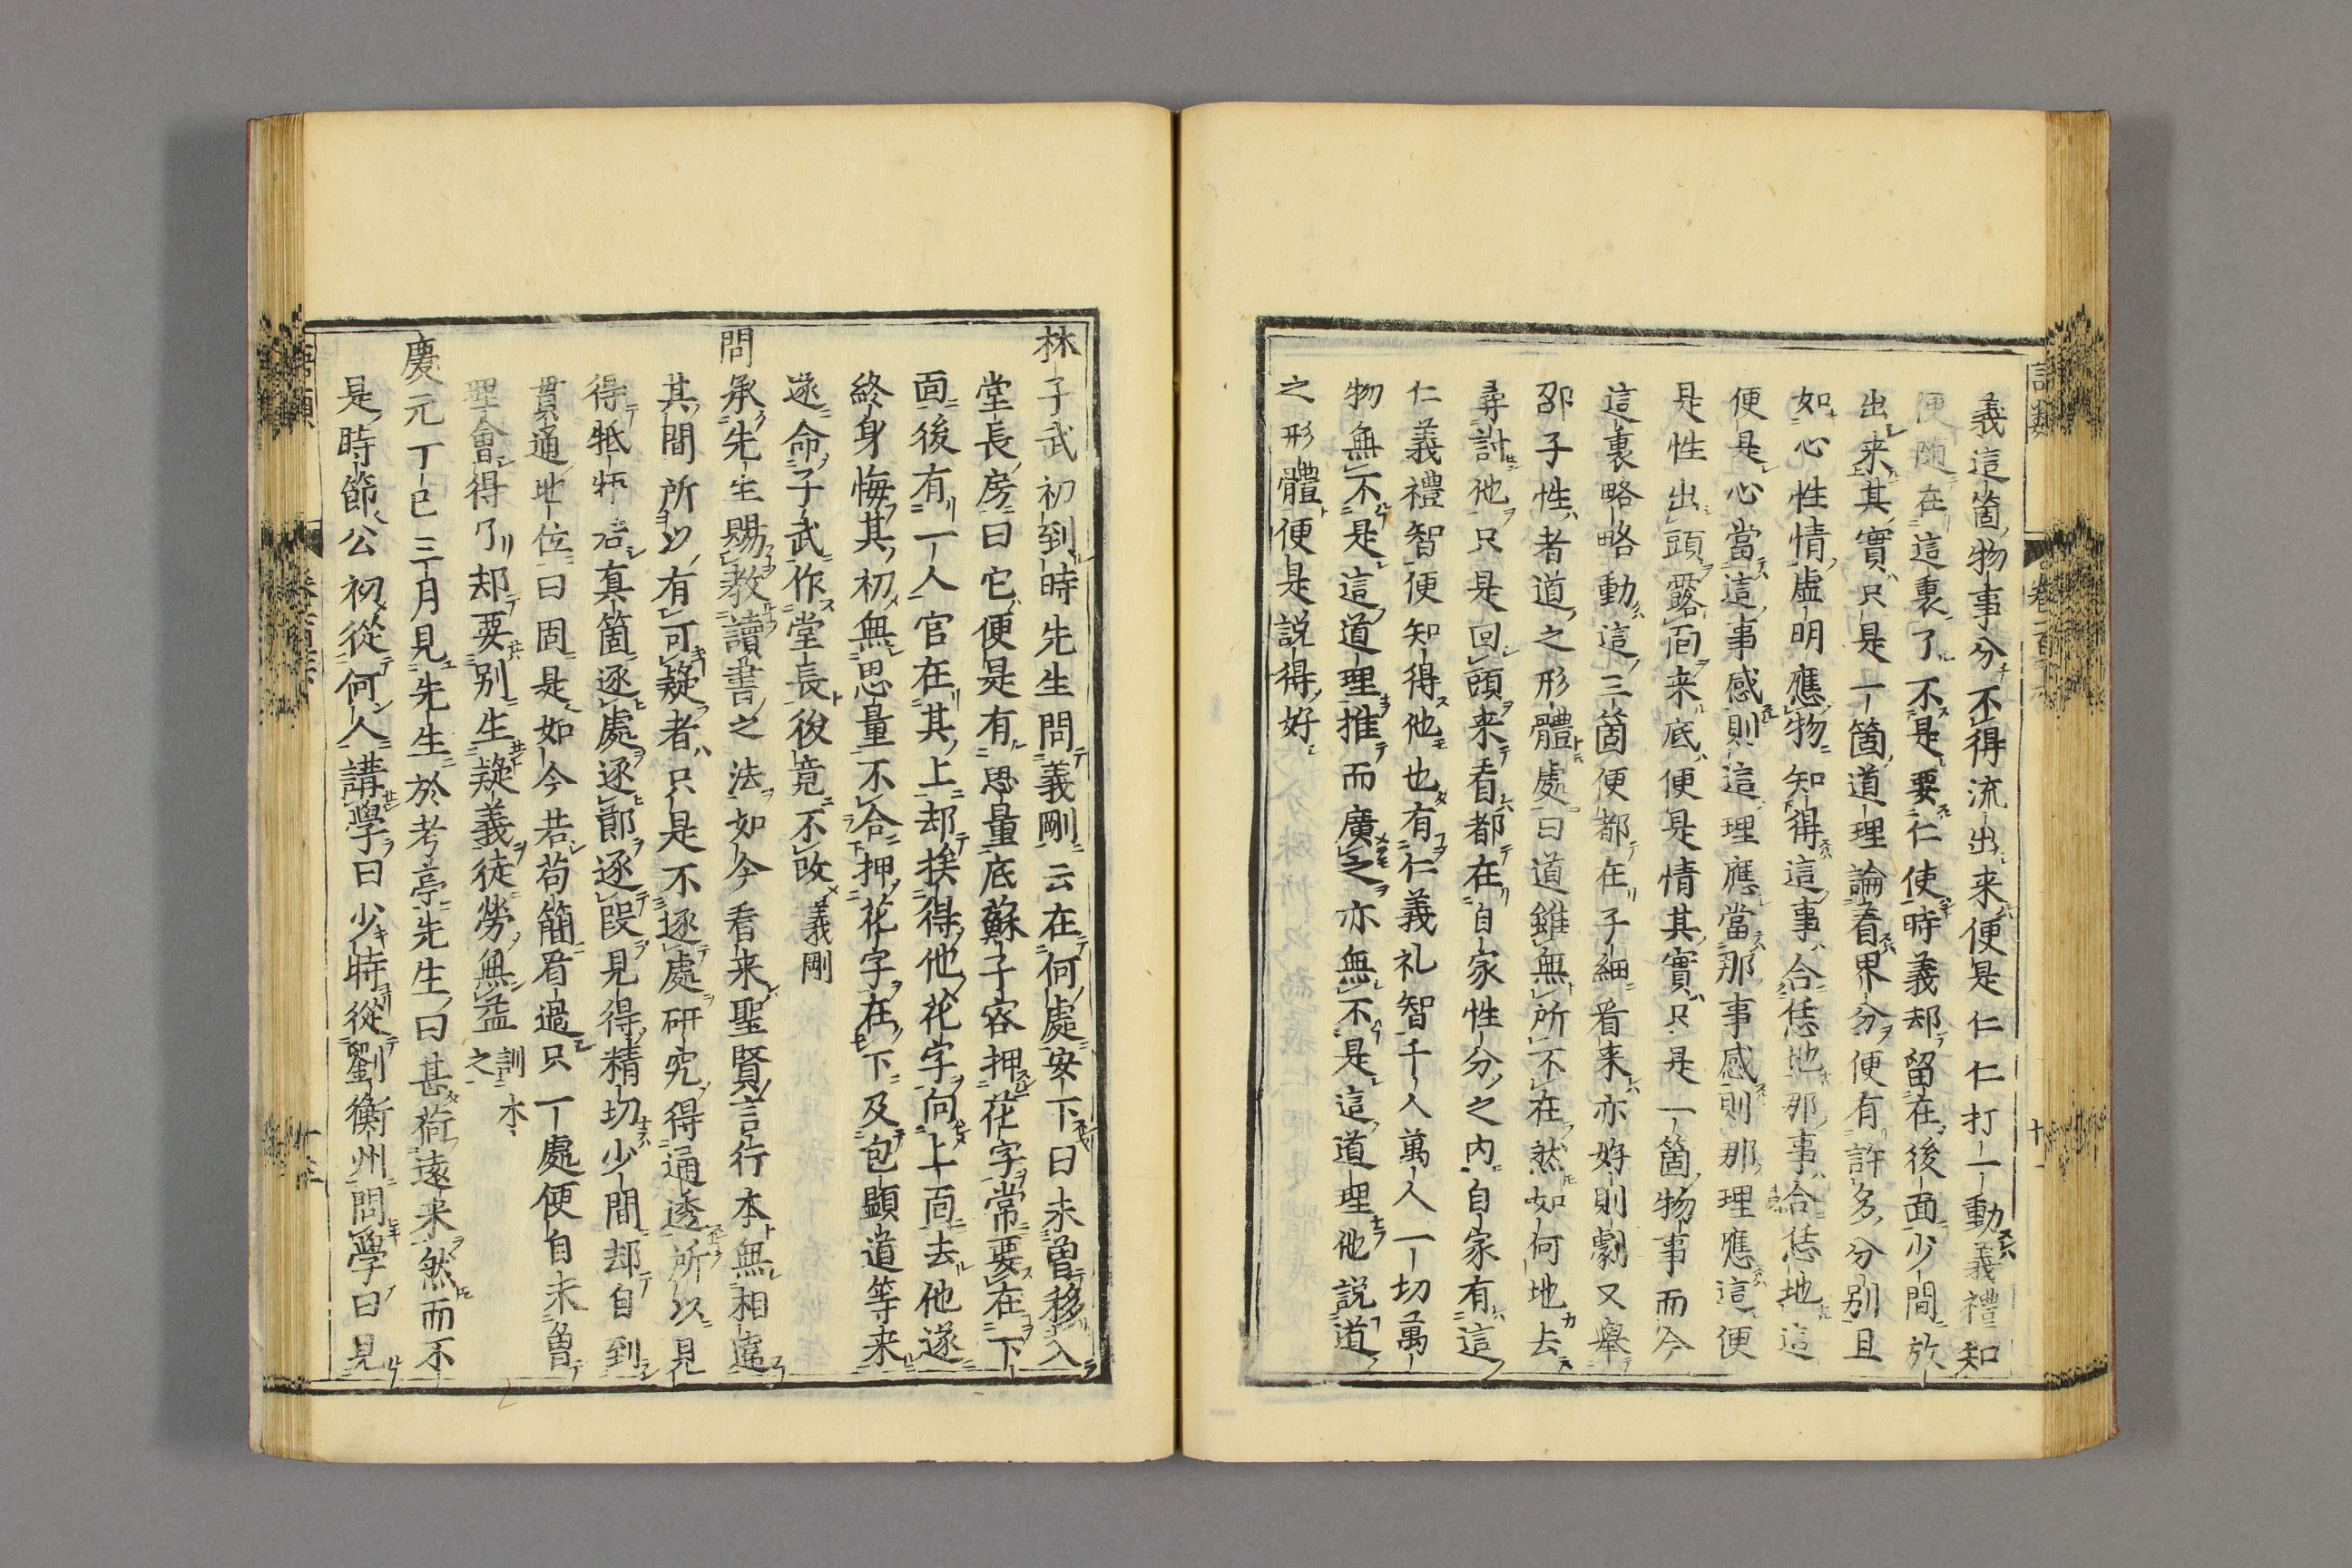 義這箇物事分不得流出来便是仁仁打一動義禮知
便随在這裏了不是要仁使時義却留在後面少間放
出来其實只是一箇道理論着界分便有許多分別且
如心性情虚明應物知得這事合恁地那事合恁地這
便是心當這事感則這理應當那事感則那理應這便
是性出頭露面来底便是情其實只是一箇物事而今
這裏略略動這三箇便都在子細看来亦好則劇又舉
邵子性者道之形體處曰道雖無所不在然如何地去
尋討他只是回頭来看都在自家性分之内自家有這
仁義禮智便知得他也有仁義礼智千人萬人一切萬
物無不是這道理推而廣之亦無不是這道理他説道
之形體便是説得好
林子武初到時先生問義剛云在何處安下曰未曾移入
堂長房曰它便是有思量底蘇子容押花字常要在下
面後有一人官在其上却挨得他花字向上面去他遂
終身悔其初無思量不合押花字在下及包顯道等来
遂命子武作堂長後竟不改 義剛
問承先生賜教讀書之法如今看来聖賢言行本無相違
其間所以有可疑者只是不逐處研究得通透所以見
得牴牾若真箇逐處逐節逐段見得精切少間却自到
貫通地位曰固是如今若苟簡看過只一處便自未曾
理會得了却要別生疑義徒勞無益 訓木之
慶元丁巳三月見先生於考亭先生曰甚荷遠来然而不
是時節公初從何人講學曰少時從劉衡州問學曰見